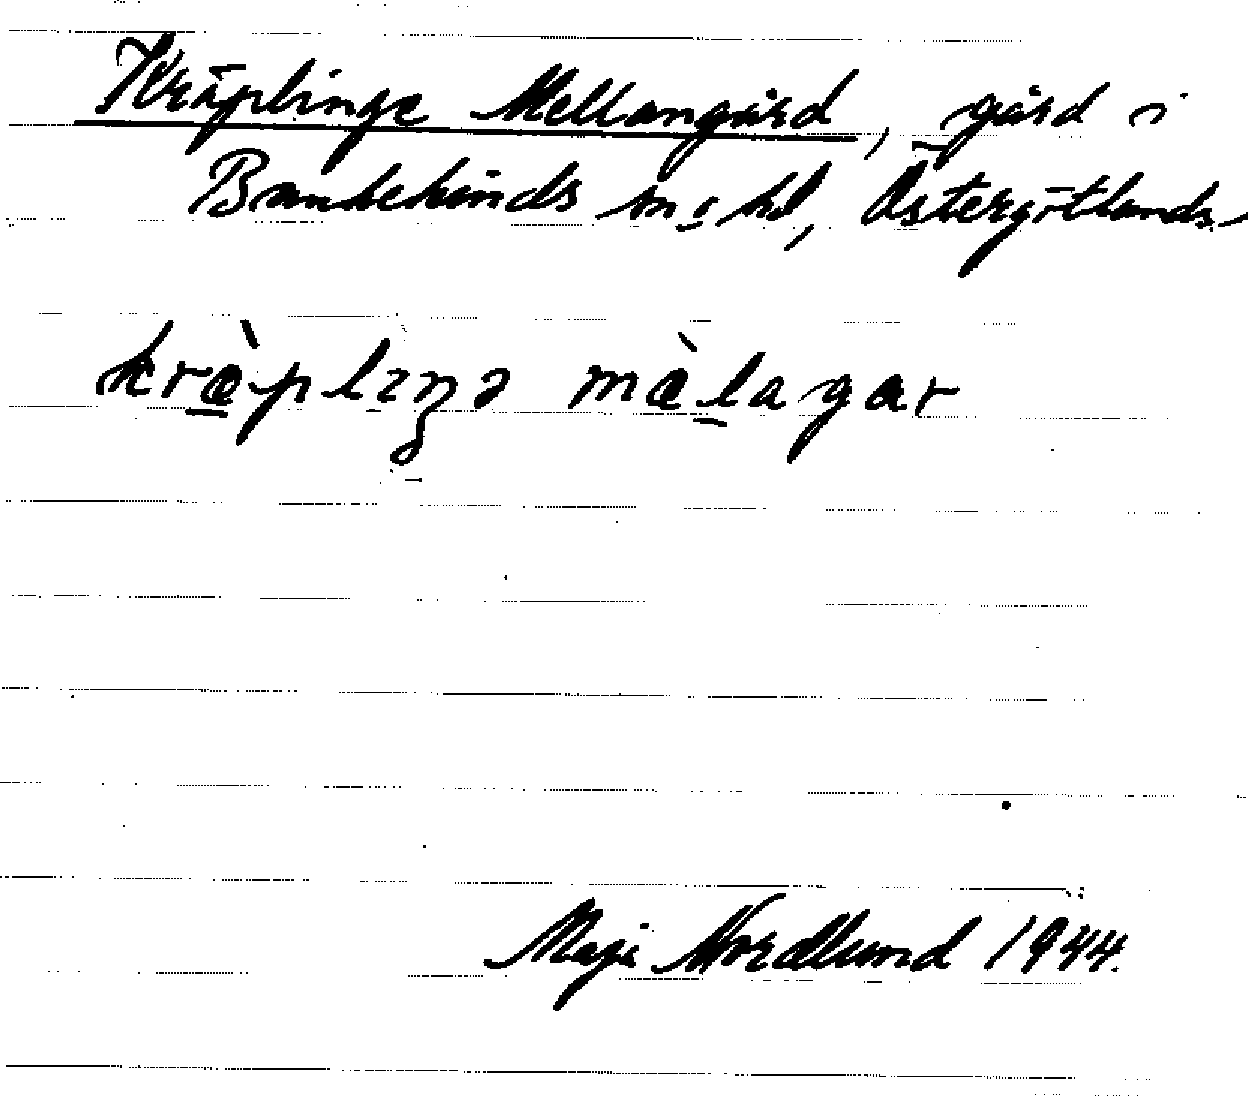 Kräplinge Mellangård, gård i
Bankekinds sn o hd, Östergötlands
kræ̀plıŋə mæ̀lagar
Maji Nordlund 1944.